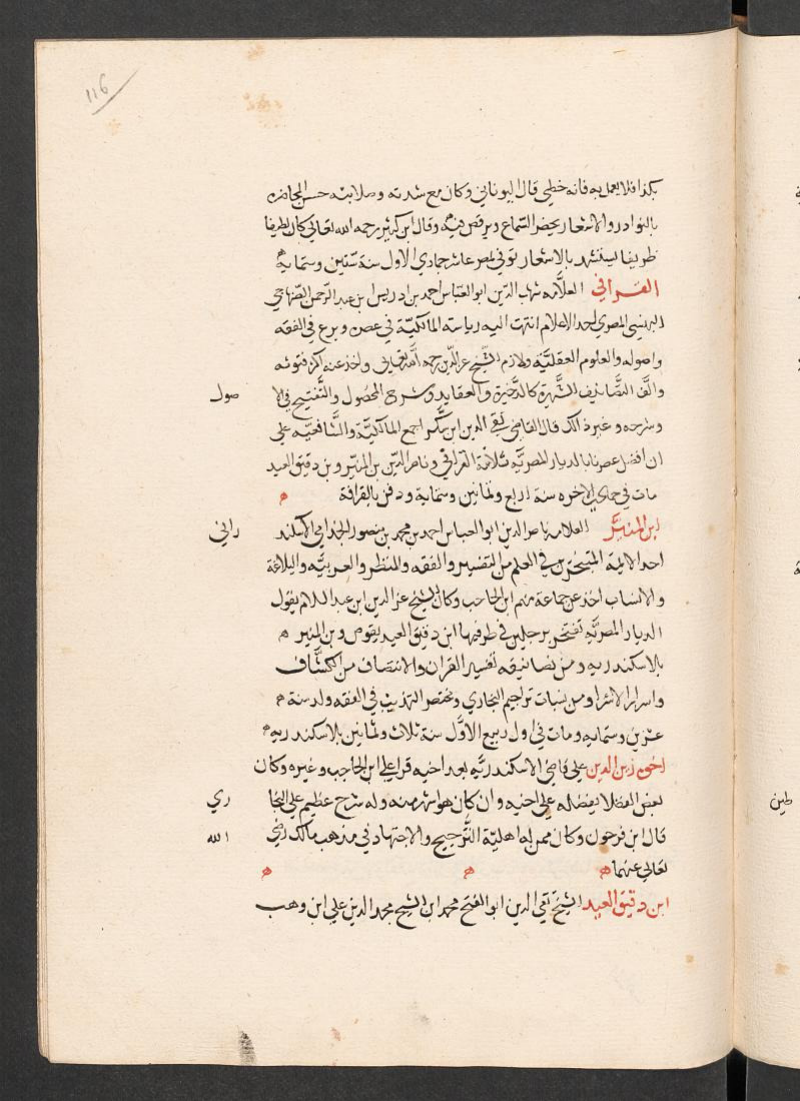 116
بكذا فلا يعمل به فانه خطى قال اليونانى وكان مع شدته وصلابته حسن المحاضره
بالنوادر والاشعار يحضر السماع ويرقص فيه وقال ابن كثير رحمه الله تعالى كان لطيفا
ظريفا يستشهد بالاشعار توفي بمصر عاشر جمادي الاول سنة ستين وستمايه
القرافي العلامه شهاب الدين ابو العباس احمد بن ادريس ابن عبد الرحمن الصنهاجي
البهنسي المصري احد الاعلام انتهت اليه رياسته المالكيّة في عصره وبرع في الفقه
واصوله والعلوم العقليّة ولازم الشيخ عز الدين رحمه الله تعالى واخذ عنه اكثر فنونه
والف التصانيف الشهيرة كالذخيرة والعقايد وشرح المحصول والتنقيح في الا صول
وشرحه وغير ذالك قال القاضي تقي الدين ابن شكر اجمع المالكيّة والشافعيه على
ان افضل عصرنا بالديار المصريّه ثلاثة القرافي وناصر الدين بن المنيّر وبن دقيق العيد
مات في جمادى الاخره سنة اربع وثمانين وستماية ودفن بالقرافة ه
ابن المنيّر العلامه ناصر الدين ابو العباس احمد بن محمد بن منصور الجذامي الاسكند راني
احد الايمة المتبحّرين في العلم من التفسير والفقه والنظر والعربيّه والبلاغة
والانساب اخذ عن جماعة منهم ابن الحاجب وكان الشيخ عز الدين ابن عبد السلام يقول
الديار المصريّه تفتخر برجلين في طرفيها ابن دقيق العيد بقوص وبن المنير ه
بالاسكندريه ومن تصانيفه تفسير القران والانتصاف من الكشّاف
واسرار الاسرا ومناسبات تراجيم البخاري ومختصر التهذيب في الفقه ولد سنة ه
عشرين وستمايه ومات في اول ربيع الاوّل سنة ثلاث وثمانين بالاسكندريه
اخوه زين الدين علي قاضي الاسكندريّه بعد اخيه قرا على ابن الحاجب وغيره وكان
بعض الفضلا يفضله على اخيه وان كان هو اشهر منه وله شرح عظيم على البخا ري
قال ابن فرحون وكان ممن له اهليّة الترجيح والاجتهاد في مذهب مالك رضي الله
تعالى عنهما ه ه ه
ابن دقيق العيد الشيخ تقي الدين ابو الفتح محمد ابن الشيخ مجد الدين علي ابن وهب
طين